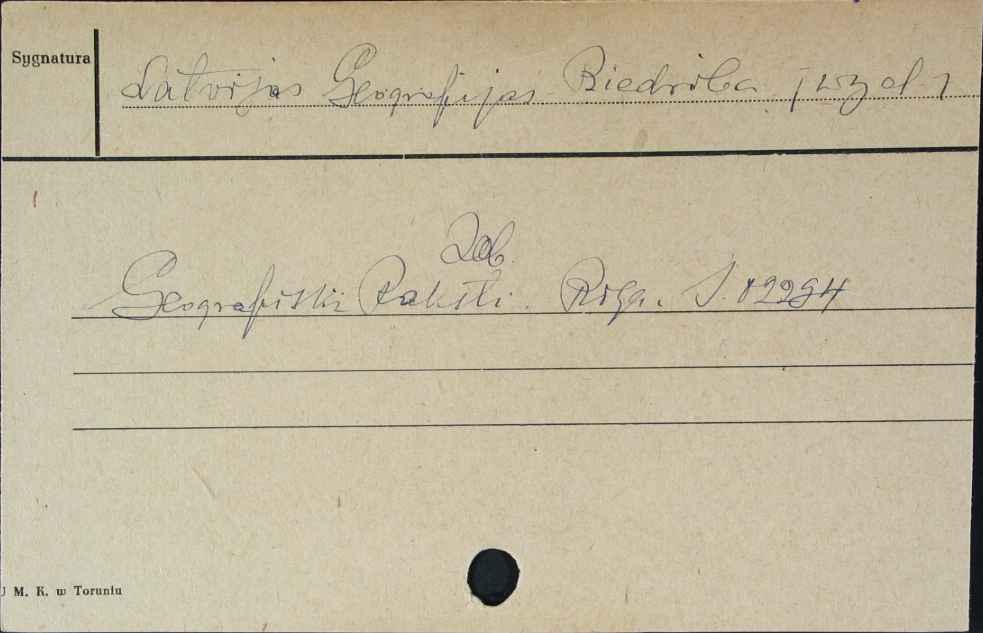 Sygnatura
Latvijas Geografijas Biedriba [wyd]
Zob.
Geografiski Raksti. Riga. S. 02294
U M. K. w Toruniu